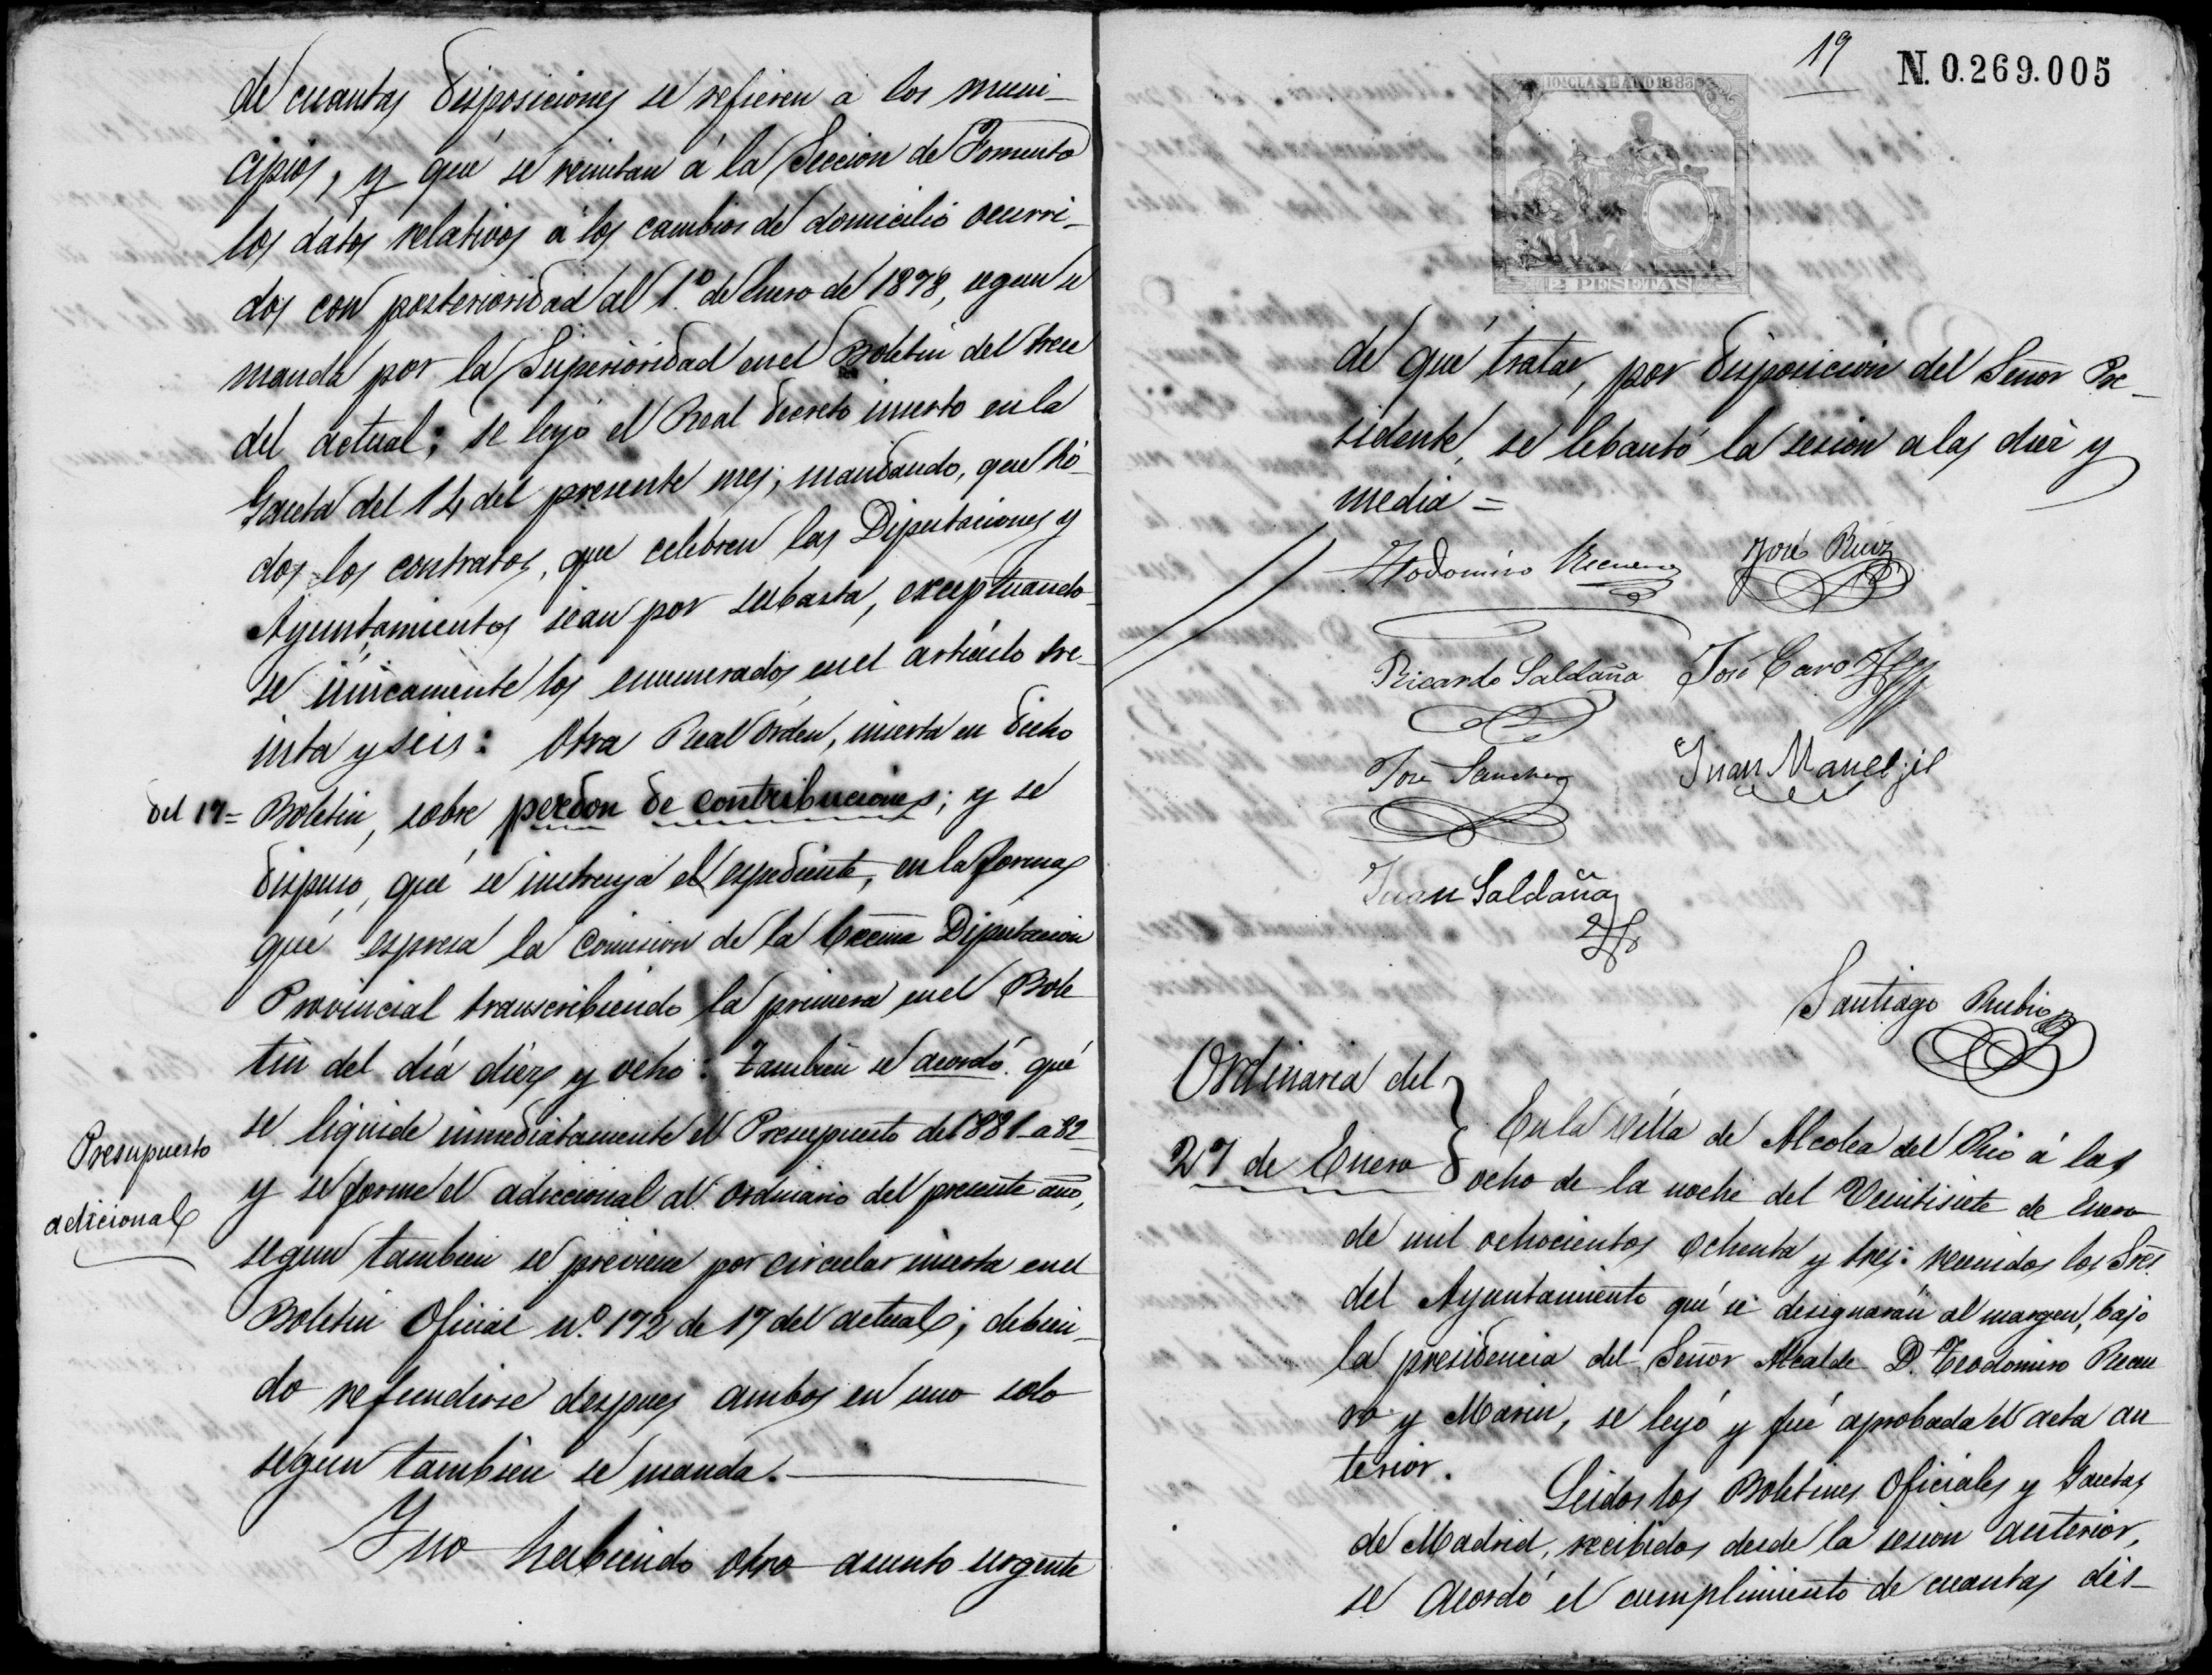 de cuantas disposiciones se refieren á los muni-
cipios, y qué se remitan á la Seccion de Fomento
los datos relativos á los cambios de domicilio ocurri-
dos con posterioridad al 1º de Enero de 1878, segun se
manda por la Superioridad en el Boletin del trece
del actual; se leyó el Real decreto inserto en la
Gaceta del 14 del presente mes; mandando, que tó-
dos los contratos, que celebren las Diputaciones y
Ayuntamientos sean por subasta, exceptuando-
se únicamente los enumerados en el artículo tre-
inta y seis: Otra Real órden, inserta en dicho
del 17= Boletin, sobre perdon de contribuciones; y se
dispuso, qué se instruya el espediente, en la forma
qué espresa la Comision de la Excma Diputacion
Provincial transcribiendo la primera en el Bole
tin del día diez y ocho: tambien se acordó qué
se liquide inmediatamente el Presupuesto de 1881-a 82-
Presupuesto
adicional
y se forme el adiccional al ordinario del presente año,
segun tambien se previene por circular inserta en el
Boletin Oficial nº 172 de 17 del actual; debien-
do refundirse despues ambos en uno solo
segun tambien se manda.
Y no habiendo otro asunto urgente
19
N. 0.269.005
10ª CLASE AÑO 1883
2 PESETAS
de qué tratar, por disposicion del Señor Pre-
sidente, se lebantó la sesion a las diez y
media =
José Ruiz
Ricardo Saldaña José Caro
José Sanchez Juan Manl jil
Juan Saldaña
Santiago Rubio
Ordinaria del
27 de Enero
En la villa de Alcolea del Rio á las
ocho de la noche del Veintisiete de Enero
de mil ochocientos ochenta y tres: reunidos los Sres.
del Ayuntamiento qué se designarán al margen, bajo
la presidencia del Señor Alcalde D. Teodomiro Recue
ro y Marin, se leyó y fué aprobada el acta an
terior.
Leidos los Boletines Oficiales y Gacetas
de Madrid, recibidos desde la sesion anterior,
se acordó el cumplimiento de cuantas dis-